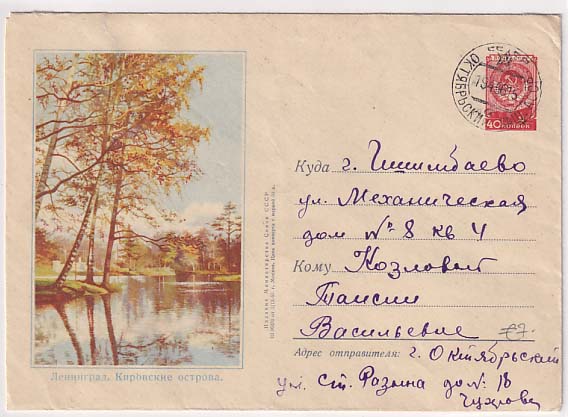 40 КОПЕЕК
ОКТЯБРЬСКИЙ
Куда г. Ишимбаево
ул. Механическая
дом № 8 кв 4
Кому Козловой
Таисии
Васильевне
Адрес отправителя: г. Октябрьский
ул. Ст. Разина до № 18
Издание Министерства Связи СССР
Ленинград. Кировские острова.